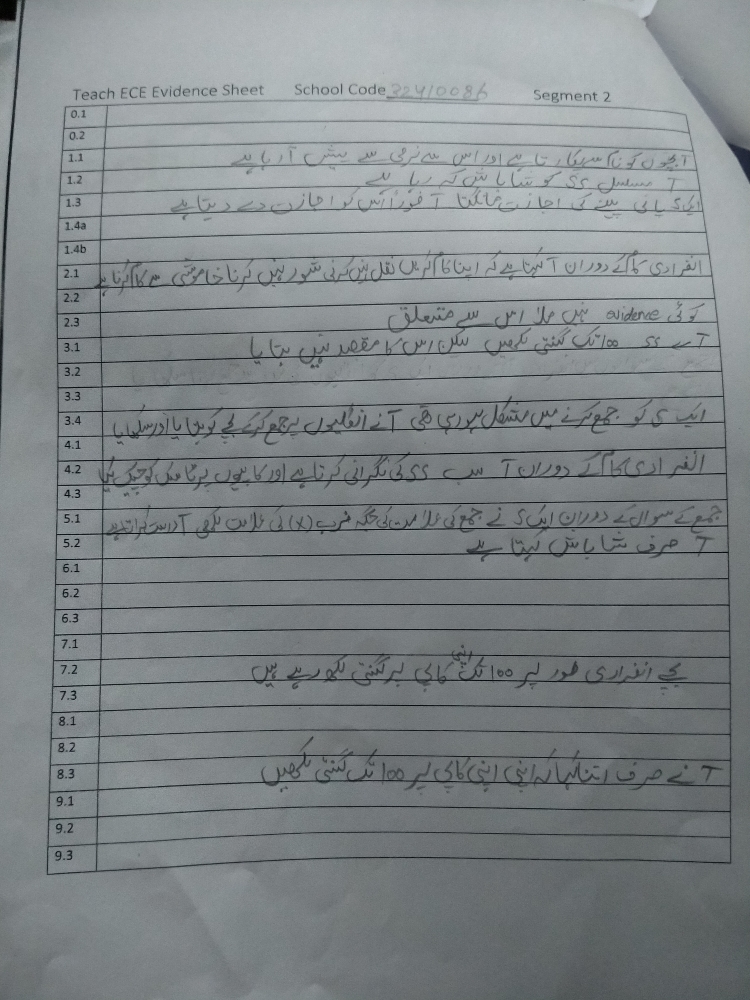 Teach ECE Evidence Sheet School Code 32410086 Segment 2
0.1
0.2
1.1 T بچوں کو نام سے پکارتا ہے اور اس سے نرمی سے پیش آ رہا ہے
1.2 T مسلسل SS کو شاباش کہہ رہا ہے
1.3 ایک S پانی پینے کی اجازت مانگتا T فوراً اس کو اجازت دے دیتا ہے
1.4a
1.4b
2.1 انفرادی کام کے دوران T کہتا ہے کہ اپنا کام کریں نقل نہیں کرنی شور نہیں کرنا خاموشی سے کام کرنا ہے
2.2
2.3 کوئی evidence نہیں ملا اس سے متعلق
3.1 T نے SS 100 تک گنتی لکھیں لیکن اس کا مقصد نہیں بتایا
3.2
3.3
3.4 ایک S کو جمع کرنے میں مشکل ہو رہی تھی T نے انگلیوں پر جمع کرکے بچے کو بتایا اور سکھایا
4.1
4.2 انفرادی کام کے دوران T سب SS کی نگرانی کرتا ہے اور کاپیوں پر کو چیک
4.3
5.1 جمع کے سوال کے دوران ایک S نے جمع کی علامت کی جگہ ضرب (x) کی علامت لکھی T درست کراتا ہے
5.2 T صرف شاباش کہتا ہے
6.1
6.2
6.3
7.1
7.2 بچے انفرادی طور پر 100 تک اپنی کاپی پر گنتی لکھ رہے ہیں
7.3
8.1
8.2
8.3 T نے صرف اتنا کہا کہ اپنی اپنی کاپی پر 100 تک گنتی لکھیں
9.1
9.2
9.3